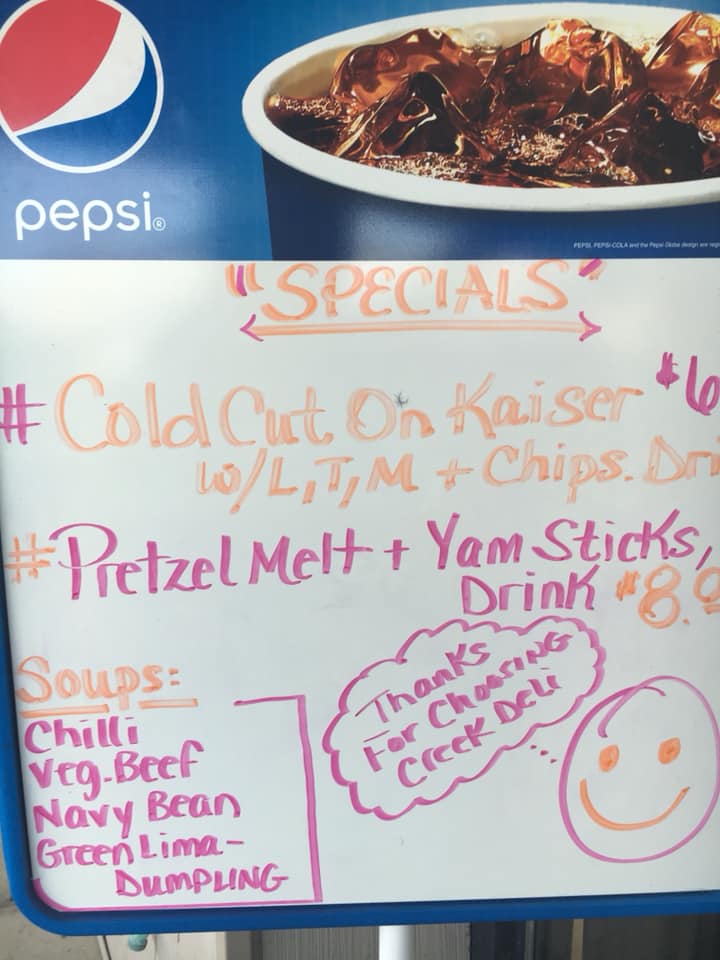 pepsi®
PEPSI, PEPSI-COLA and the Pepsi Globe design are
"SPECIALS"
# Cold Cut On Kaiser $6
w/L,T,M + Chips. Dri
# Pretzel Melt + Yam Sticks,
Drink $8.
Soups:
Chilli
Veg. Beef
Navy Bean
Green Lima-
DUMPLING
Thanks
For Choosing
Creek Deli